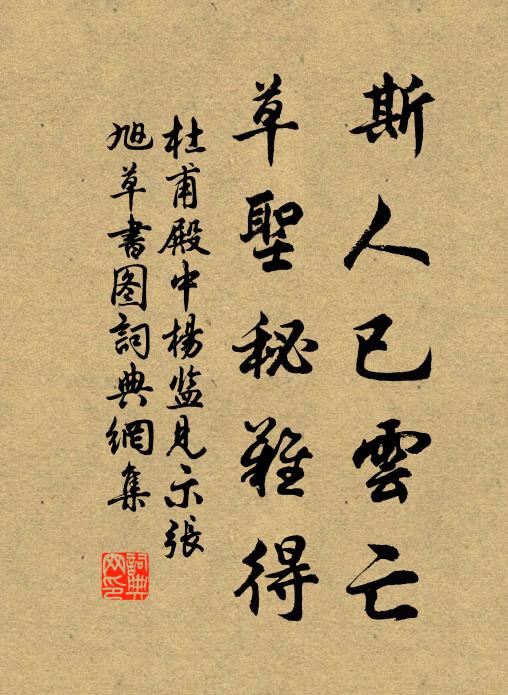 斯人已雲亡
草聖秘難得
杜甫殿中楊监見示張
旭草書图詞典網集
詞典网印